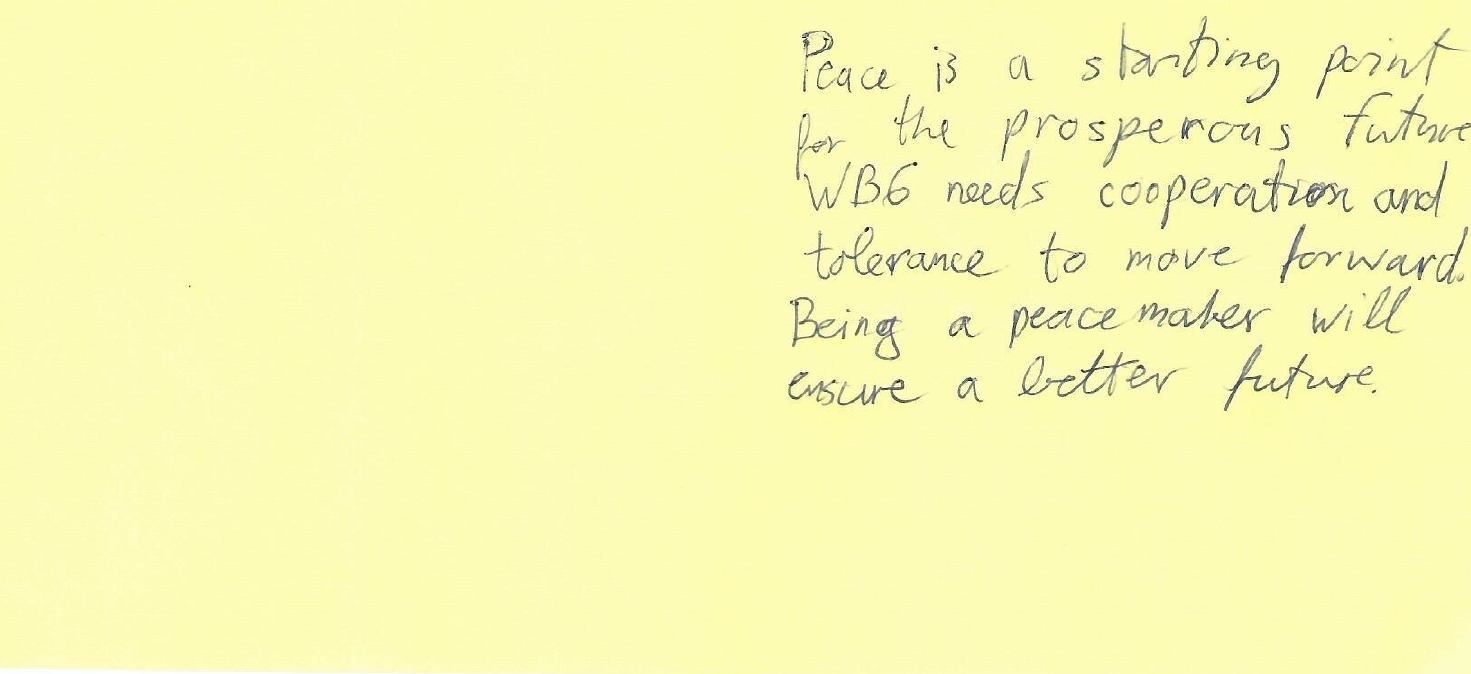 Peace is a starting point
for the prosperous future
WB6 needs cooperation and
tolerance to move forward.
Being a peacemaker will
ensure a better future.